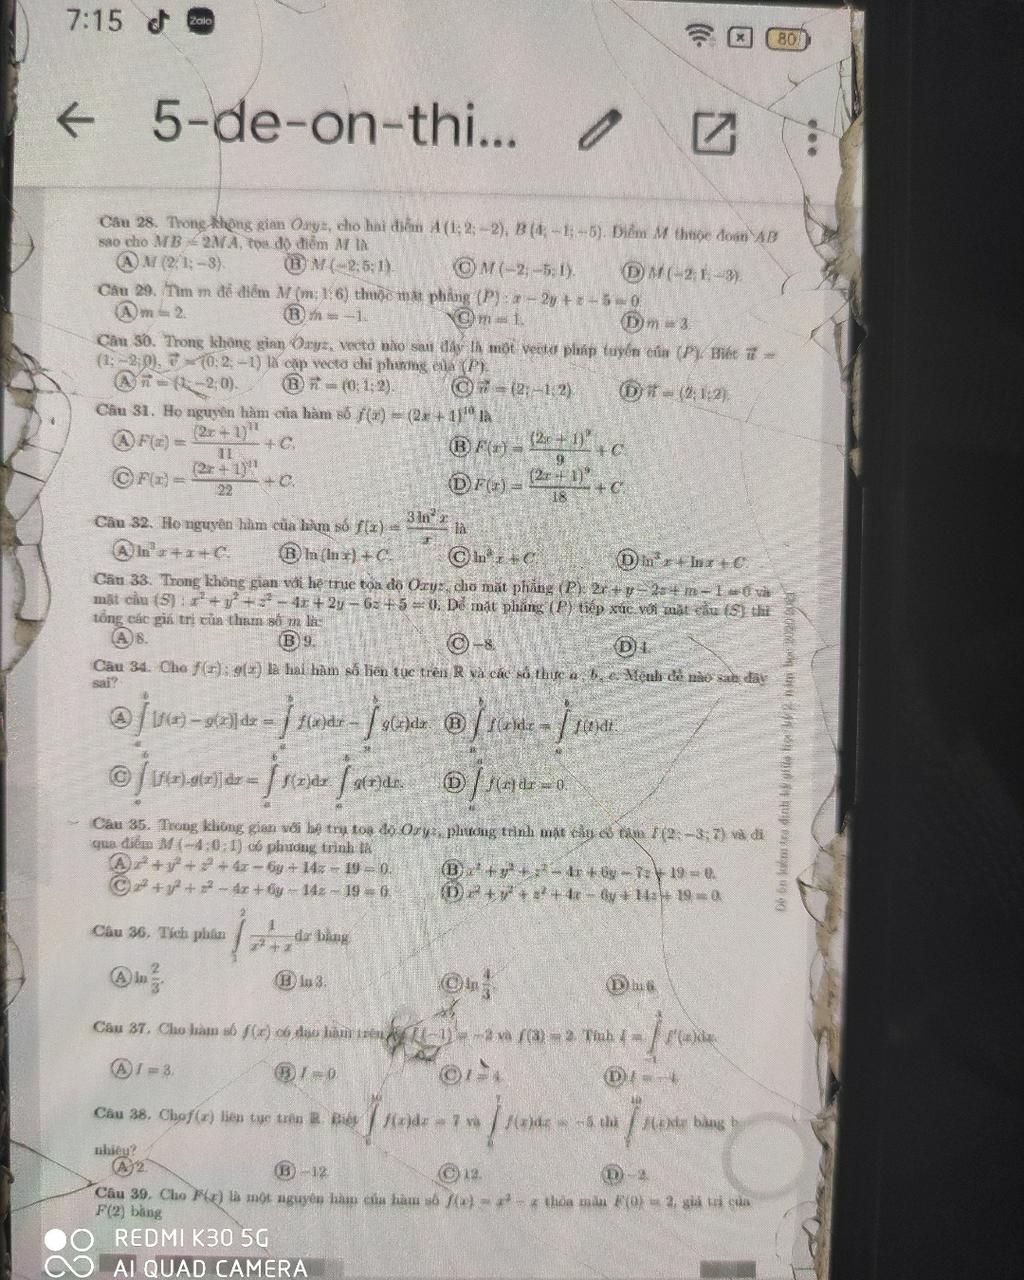 7:15 Zalo 80
5-de-on-thi...
Câu 28. Trong không gian Oxyz, cho hai điểm A(1; 2; −2), B(4; −1; −5). Điểm M thuộc đoạn AB
sao cho MB = 2MA, tọa độ điểm M là
A M(2; 1; −3). B M(−2; 5; 1). C M(−2; −5; 1). D M(−2; 1; −3).
Câu 29. Tìm m để điểm M(m; 1; 6) thuộc mặt phẳng (P) : x − 2y + z − 5 = 0.
A m = 2. B m = −1. C m = 1. D m = 3.
Câu 30. Trong không gian Oxyz, vectơ nào sau đây là một vectơ pháp tuyến của (P). Biết u⃗ =
(1; −2; 0), v⃗ = (0; 2; −1) là cặp vectơ chỉ phương của (P).
A n⃗ = (1; −2; 0). B n⃗ = (0; 1; 2). C n⃗ = (2; −1; 2). D n⃗ = (2; 1; 2).
Câu 31. Họ nguyên hàm của hàm số f(x) = (2x + 1)¹⁰ là
A F(x) = (2x + 1)¹¹/11 + C. B F(x) = (2x + 1)⁹/9 + C.
C F(x) = (2x + 1)¹¹/22 + C. D F(x) = (2x + 1)⁹/18 + C.
Câu 32. Họ nguyên hàm của hàm số f(x) = 3 ln² x/x là
A ln³ x + x + C. B ln (ln x) + C. C ln³ x + C. D ln³ x + ln x + C.
Câu 33. Trong không gian với hệ trục tọa độ Oxyz, cho mặt phẳng (P): 2x + y − 2z + m − 1 = 0 và
mặt cầu (S) : x² + y² + z² − 4x + 2y − 6z + 5 = 0. Để mặt phẳng (P) tiếp xúc với mặt cầu (S) thì
tổng các giá trị của tham số m là:
A 8. B 9. C −8. D 4.
Câu 34. Cho f(x); g(x) là hai hàm số liên tục trên ℝ và các số thực a, b, c. Mệnh đề nào sau đây
sai?
A ∫ₐᵇ [f(x) − g(x)] dx = ∫ₐᵇ f(x)dx − ∫ₐᵇ g(x)dx. B ∫ₐᵇ f(x)dx = ∫ₐᵇ f(t)dt.
C ∫ₐᵇ [f(x).g(x)] dx = ∫ₐᵇ f(x)dx ∫ₐᵇ g(x)dx. D ∫ₐᵃ f(x) dx = 0.
Câu 35. Trong không gian với hệ trụ toạ độ Oxyz, phương trình mặt cầu có tâm I(2; −3; 7) và đi
qua điểm M(−4; 0; 1) có phương trình là
A x² + y² + z² + 4x − 6y + 14z − 19 = 0. B x² + y² + z² − 4x + 6y − 7z + 19 = 0.
C x² + y² + z² − 4x + 6y − 14z − 19 = 0. D x² + y² + z² + 4x − 6y + 14z + 19 = 0.
Câu 36. Tích phân ∫₁² 1/(x² + x) dx bằng
A ln 2/3. B ln 3. C ln 4/3. D ln 6.
Câu 37. Cho hàm số f(x) có đạo hàm trên f(−1) = −2 và f(3) = 2. Tính I = ∫ f'(x)dx.
A I = 3. B I = 0. C I = 4. D I = −4.
Câu 38. Cho f(x) liên tục trên ℝ. Biết ∫ f(x)dx = 7 và ∫ f(x)dx = −5 thì ∫ f(x)dx bằng
nhiêu?
A 2. B −12. C 12. D −2.
Câu 39. Cho F(x) là một nguyên hàm của hàm số f(x) = x² − x thỏa mãn F(0) = 2, giá trị của
F(2) bằng
REDMI K30 5G
AI QUAD CAMERA